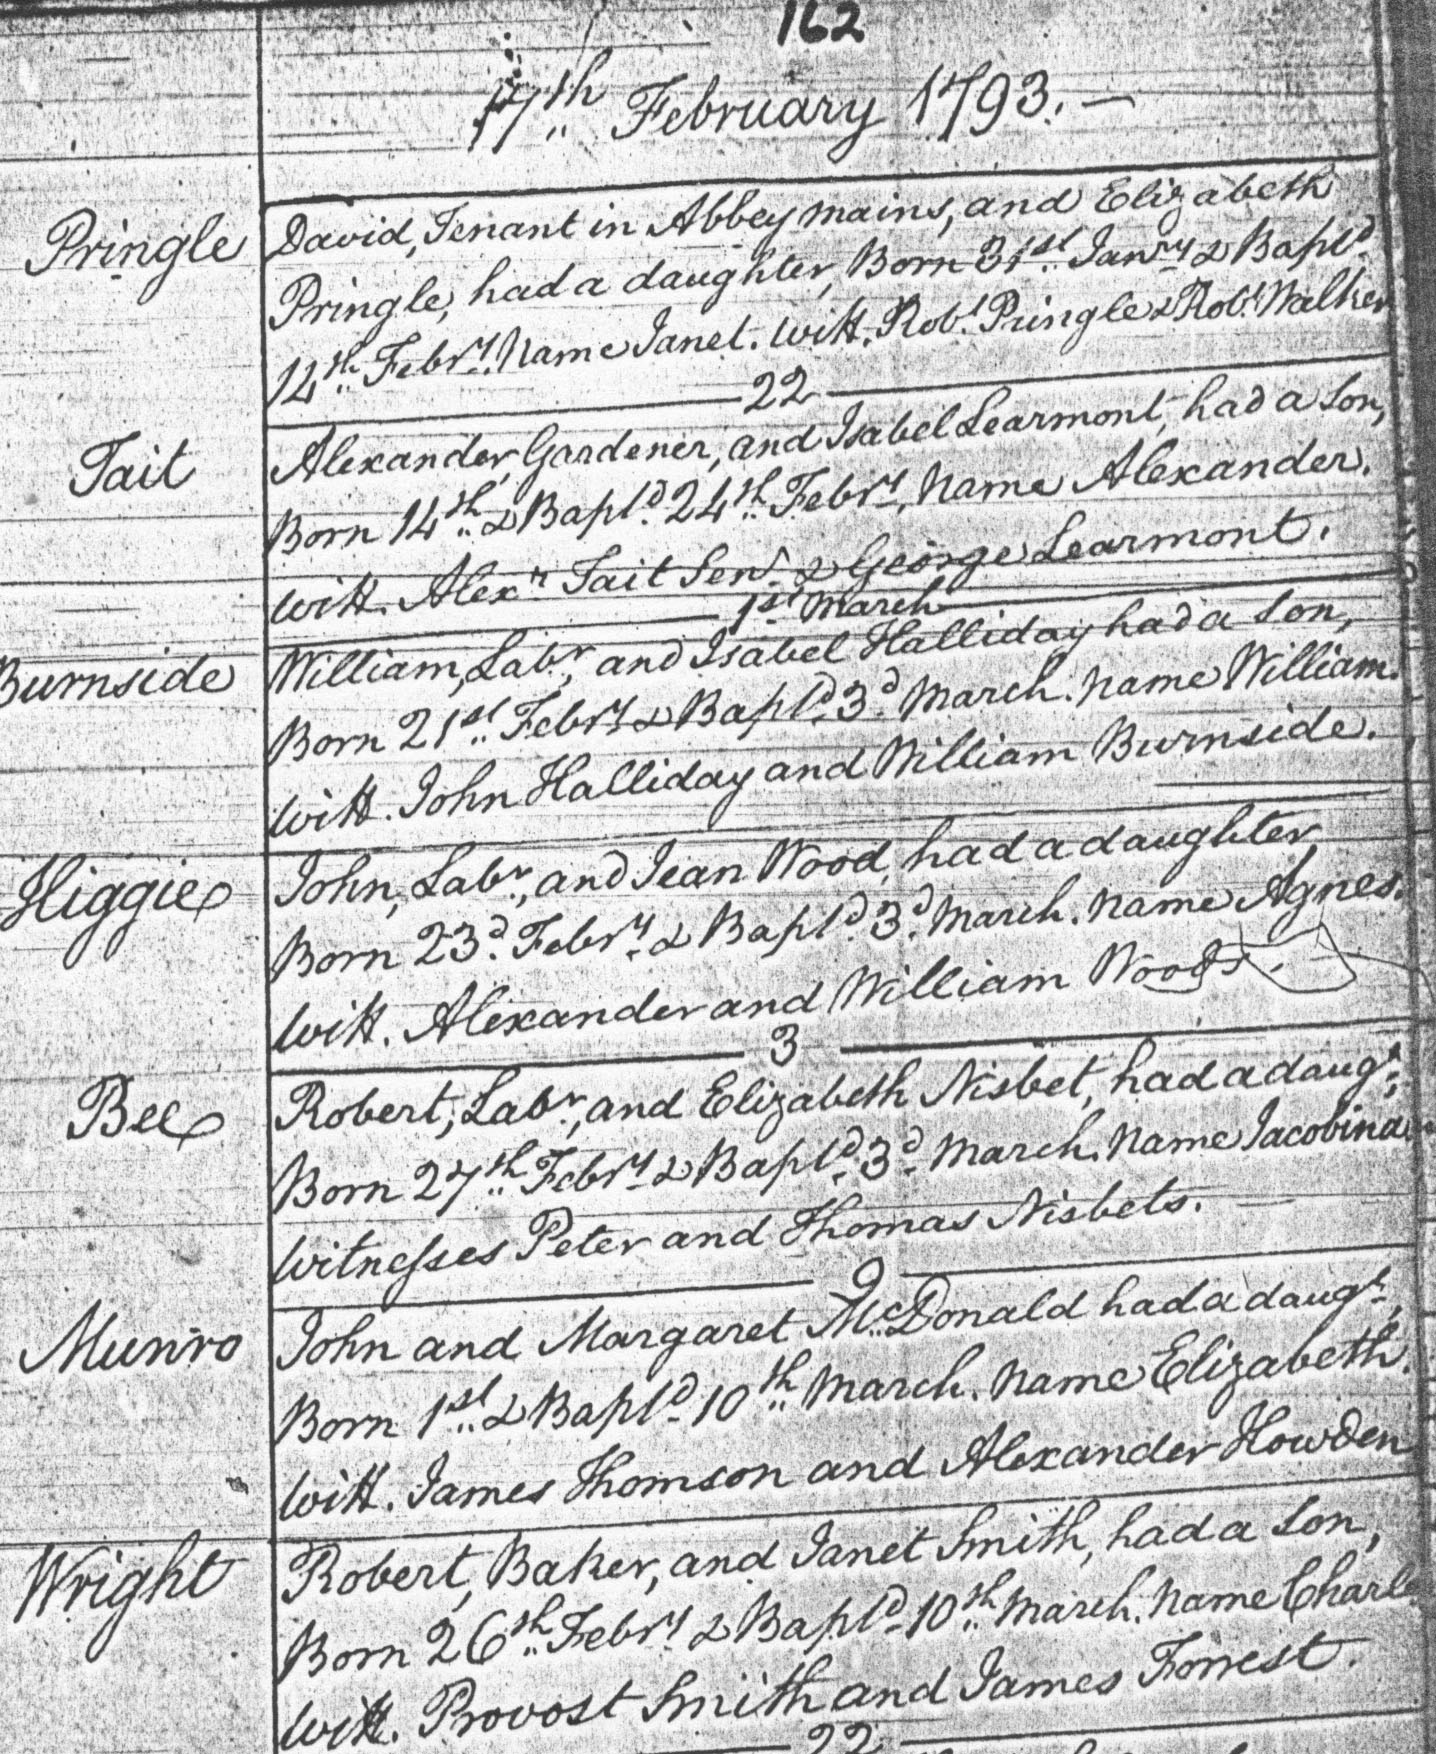 162
17th February 1793. —
Pringle
David, Tenant in Abbeymains, and Elizabeth
Pringle, had a daughter, Born 31st Janry & Baptd
14th Febry. Name Janet. Witt. Robt Pringle & Robt Walker
22
Tait
Alexander, Gardener, and Isabel Learmont, had a Son,
Born 14th & Baptd 24th Febry, Name Alexander.
Witt. Alexr Tait Senr & George Learmont.
1st March
Burnside
William, Labr, and Isabel Halliday had a Son,
Born 21st Febry & Baptd 3d March. Name William.
Witt. John Halliday and William Burnside.
Higgie
John, Labr, and Jean Wood, had a daughter,
Born 23d Febry & Baptd 3d March. Name Agnes.
Witt. Alexander and William Woods.
3
Bee
Robert, Labr, and Elizabeth Nisbet, had a daugr,
Born 27th Febry & Baptd 3d March. Name Jacobina
Witnesses Peter and Thomas Nisbets.
9
Munro
John and Margaret McDonald had a daugr,
Born 1st & Baptd 10th March. Name Elizabeth.
Witt. James Thomson and Alexander Howden
Wright
Robert, Baker, and Janet Smith, had a Son,
Born 26th Febry & Baptd 10th March. Name Charle
Witt. Provost Smith and James Forrest.
22